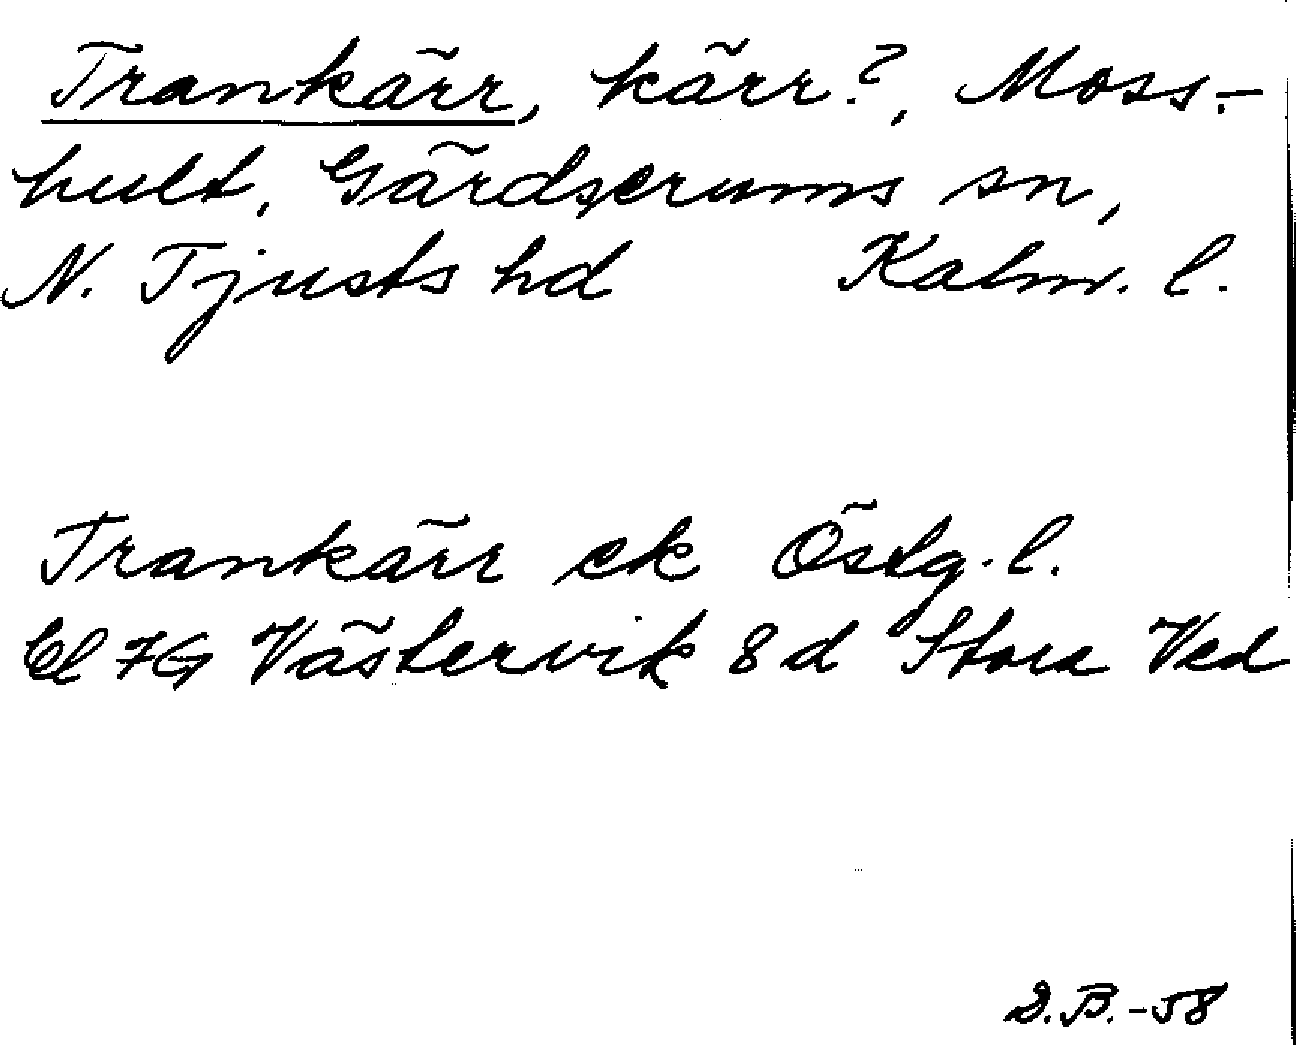 Trankärr, kärr?, Moss-
hult, Gärdserums sn,
N. Tjusts hd Kalm. l.
Trankärr ek Östg. l.
Bl 7G Västervik 8d Stora Ved
D.B.-58